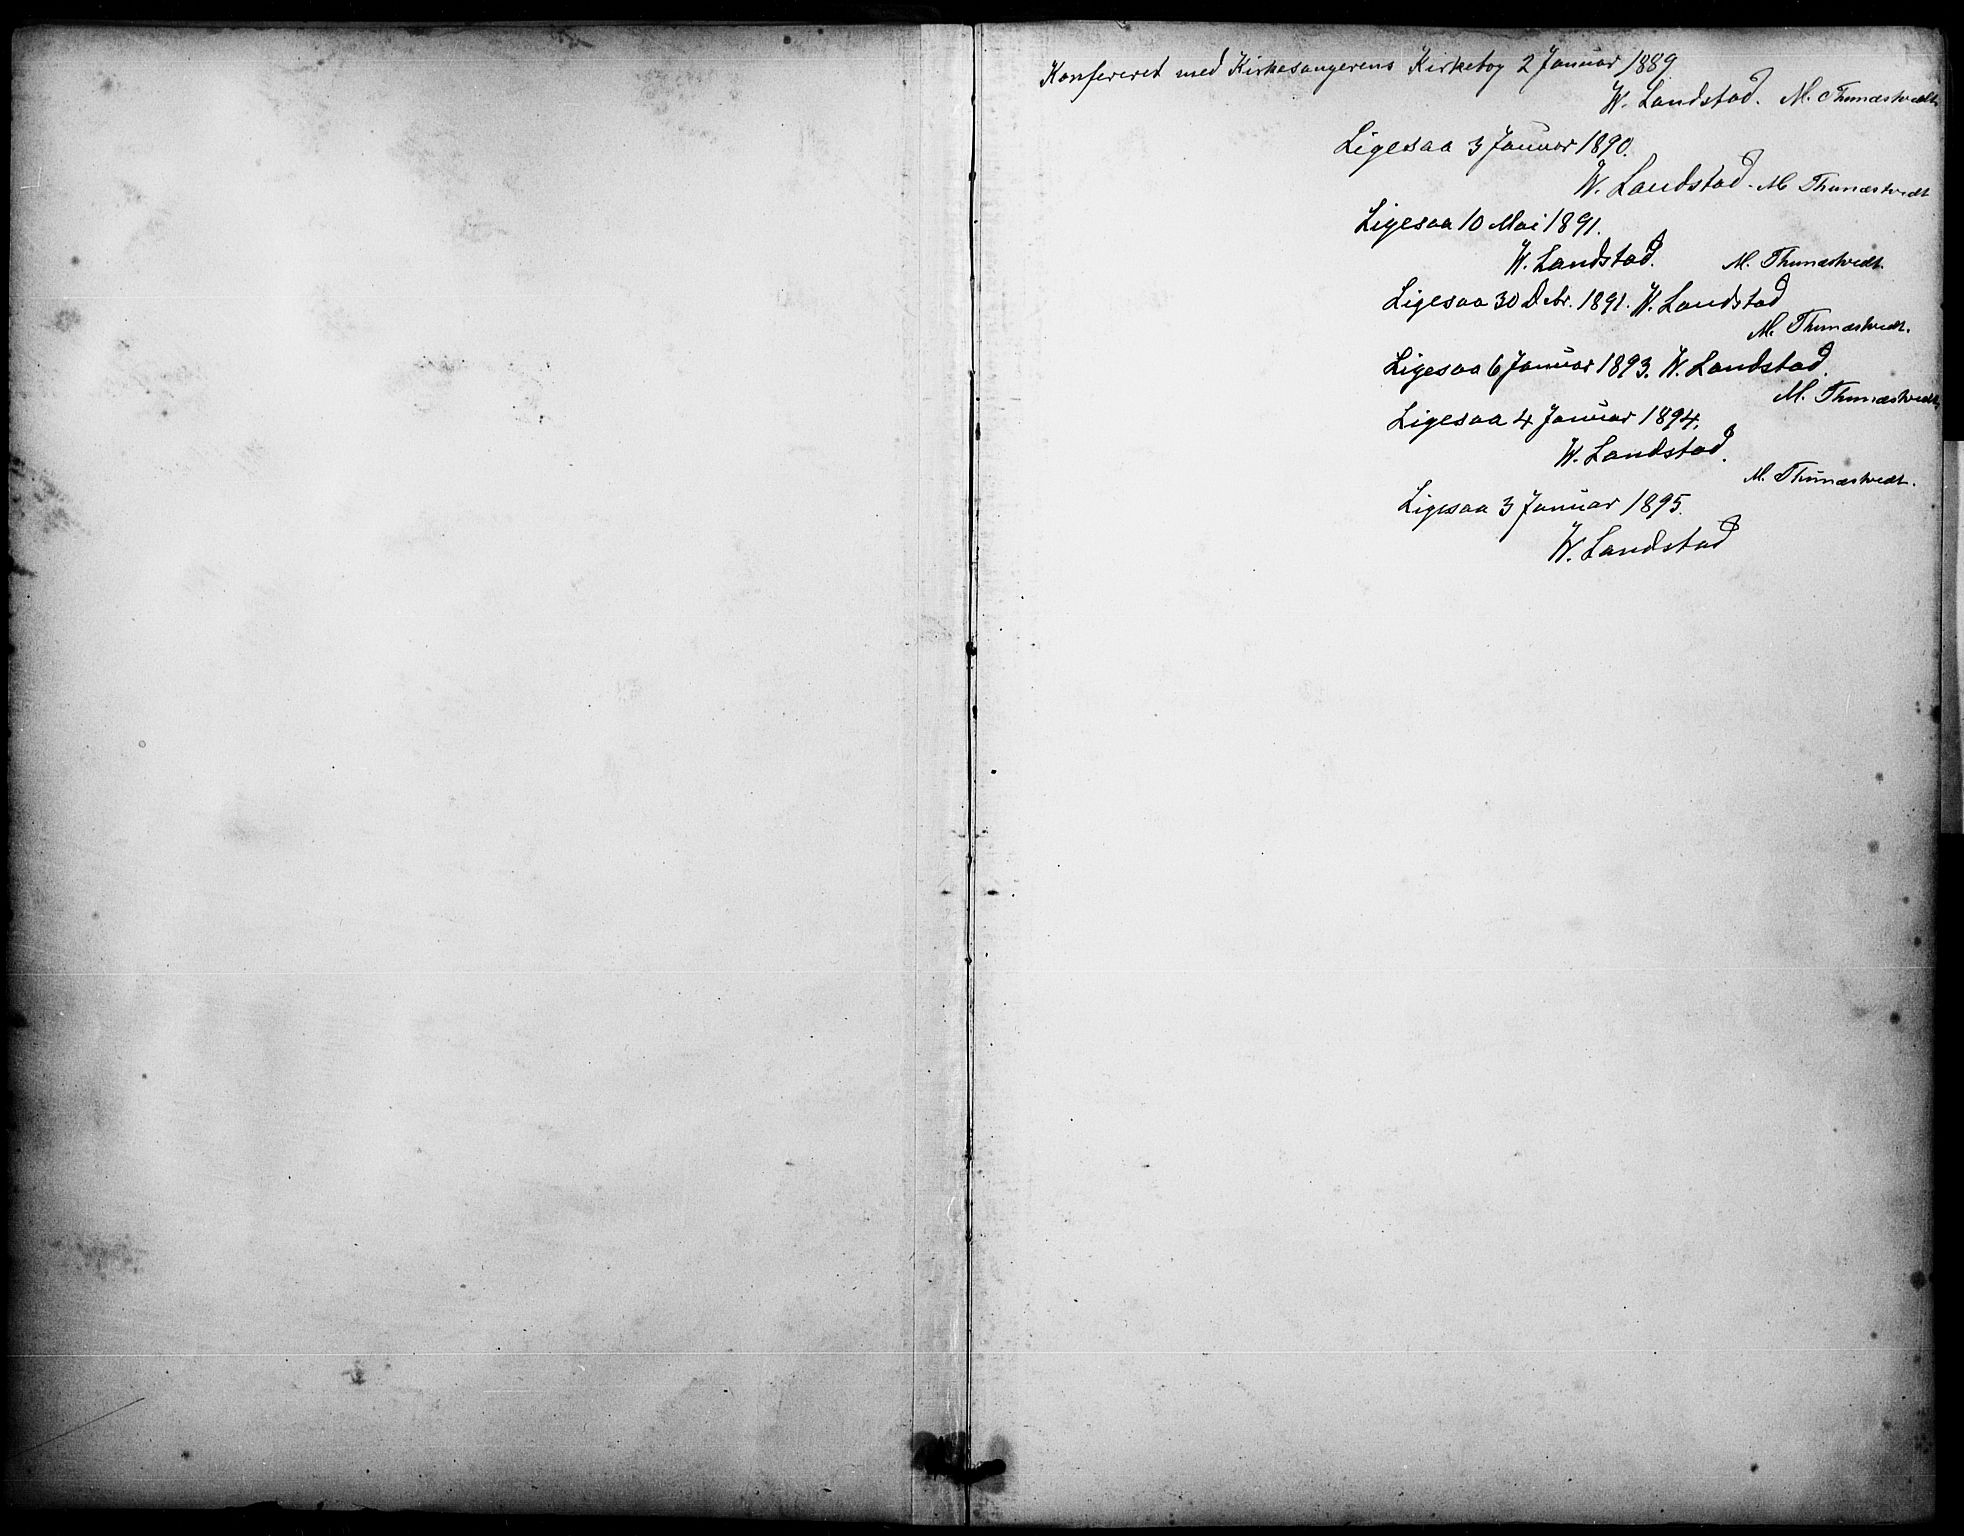 Konfereret med Kirkesangerens Kirkebog 2 Januar 1889
W. Landstad. M. Thunæstvedt
Ligesaa 3 Januar 1890.
W. Landstad. M Thunæstvedt
Ligesaa 10 Mai 1891.
W. Landstad. M. Thunæstvedt.
Ligesaa 30 Debr. 1891. W. Landstad
M. Thunæstvedt.
Ligesaa 6 Januar 1893. W. Landstad.
M. Thunæstvedt
Ligesaa 4 Januar 1894.
W. Landstad.
M. Thunæstvedt.
Ligesaa 3 Januar 1895.
W. Landstad